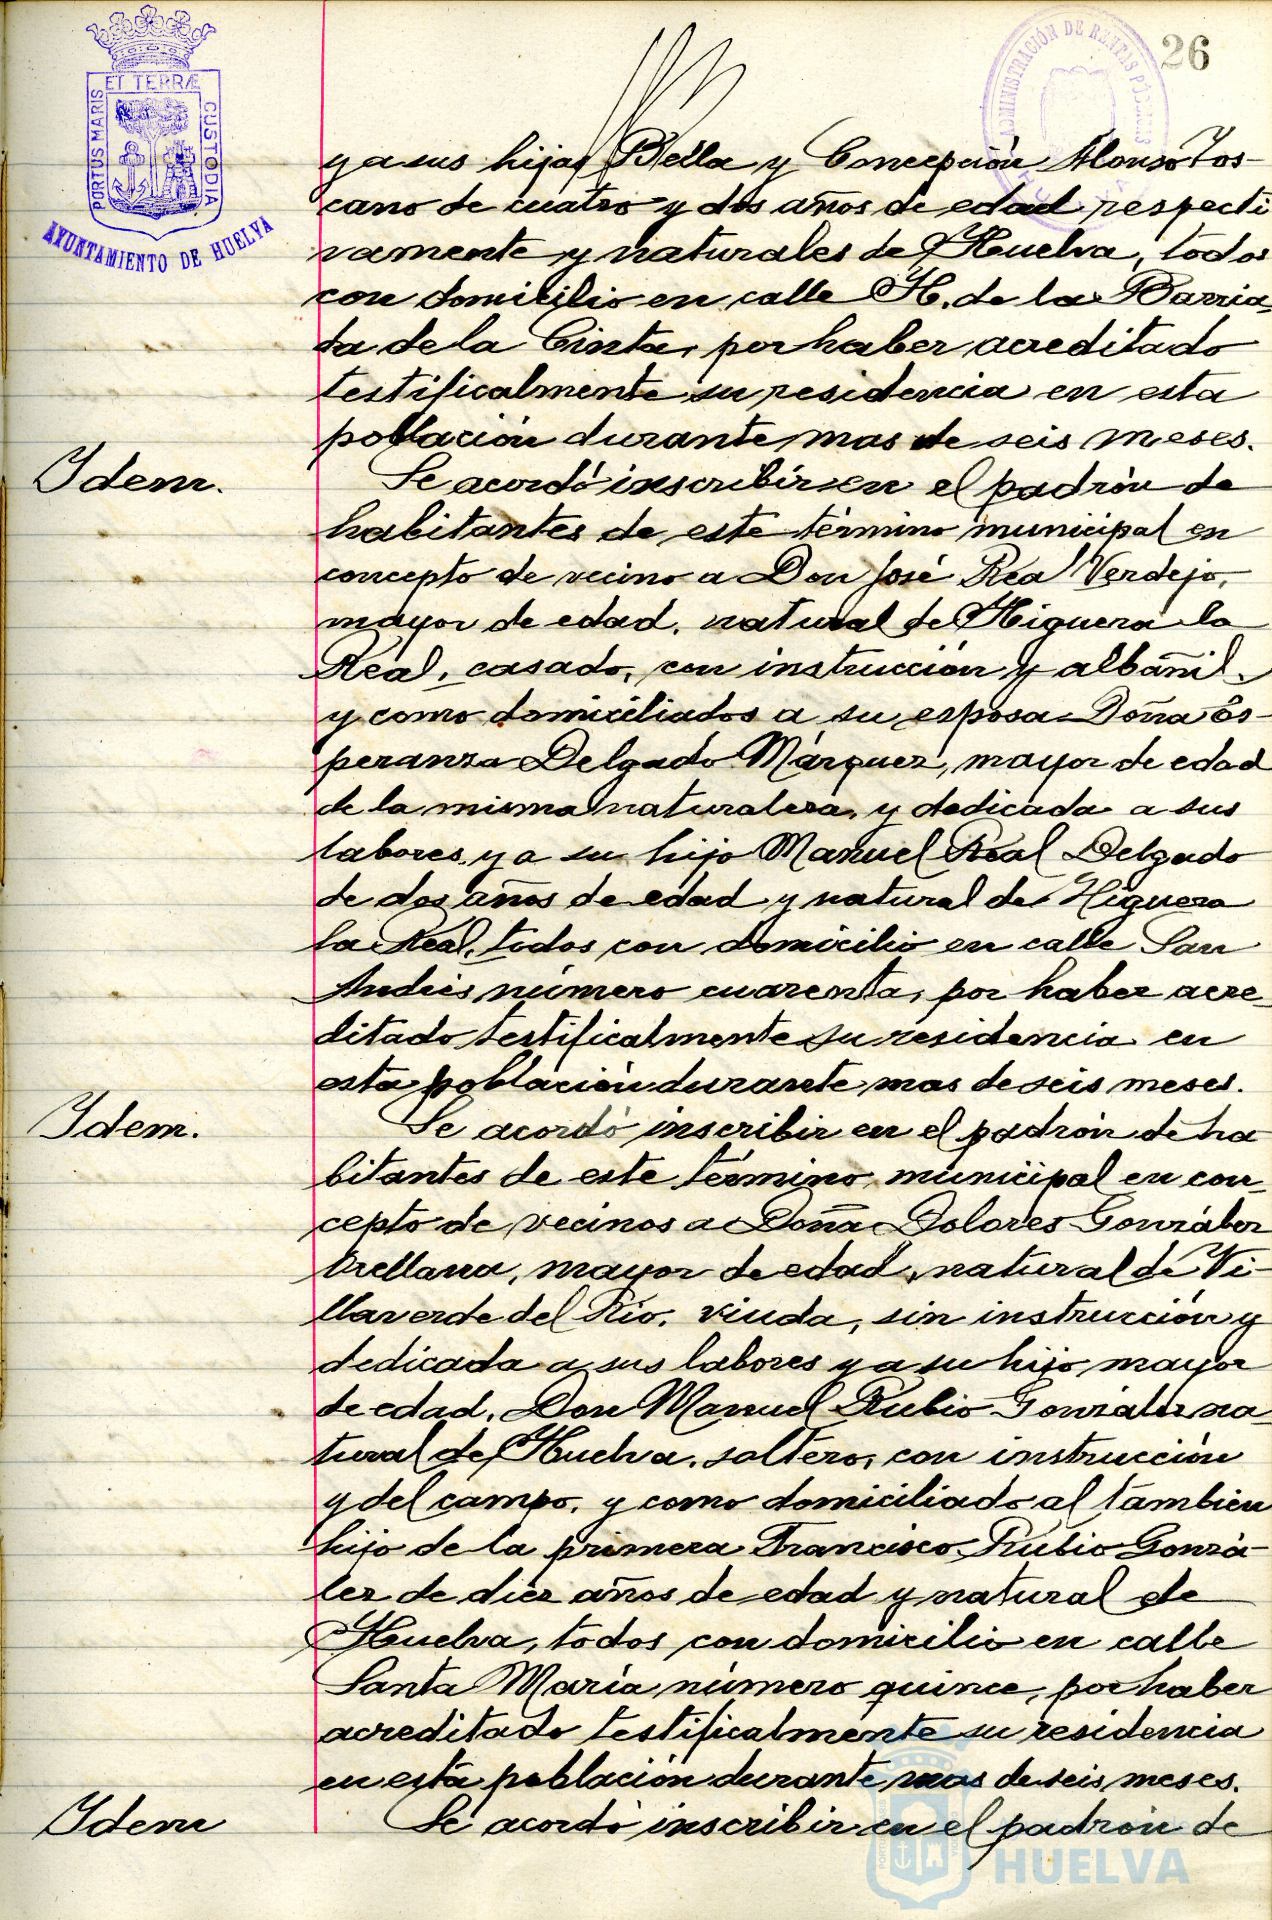 26
ADMINISTRACIÓN DE RENTAS PÚBLICAS
PORTUS MARIS ET TERRÆ CUSTODIA
AYUNTAMIENTO DE HUELVA
y a sus hijas Bella y Concepción Alonso Tos-
cano de cuatro y dos años de edad respecti
vamente y naturales de Huelva, todos
con domicilio en calle H. de la Barria-
da de la Cinta, por haber acreditado
testificalmente su residencia en esta
población durante mas de seis meses.
Idem.
Se acordó inscribir en el padrón de
habitantes de este término municipal en
concepto de vecino a Don José Real Verdejo,
mayor de edad, natural de Higuera la
Real, casado, con instrucción y albañil,
y como domiciliados a su esposa Doña Es-
peranza Delgado Márquez, mayor de edad
de la misma naturaleza, y dedicada a sus
labores y a su hijo Manuel Real Delgado
de dos años de edad y natural de Higuera
la Real, todos con domicilio en calle San
Andrés número cuarenta, por haber acre-
ditado testificalmente su residencia en
esta población durante mas de seis meses.
Idem.
Se acordó inscribir en el padrón de ha
bitantes de este término municipal en con-
cepto de vecinos a Doña Dolores González
Orellana, mayor de edad, natural de Vi-
llaverde del Río, viuda, sin instrucción y
dedicada a sus labores y a su hijo mayor
de edad, Don Manuel Rubio González na-
tural de Huelva, soltero, con instrucción
y del campo, y como domiciliado al tambien
hijo de la primera Francisco Rubio Gonzá-
lez de diez años de edad y natural de
Huelva, todos con domicilio en calle
Santa María número quince, por haber
acreditado testificalmente su residencia
en esta población durante mas de seis meses.
Idem
Se acordó inscribir en el padrón de
HUELVA